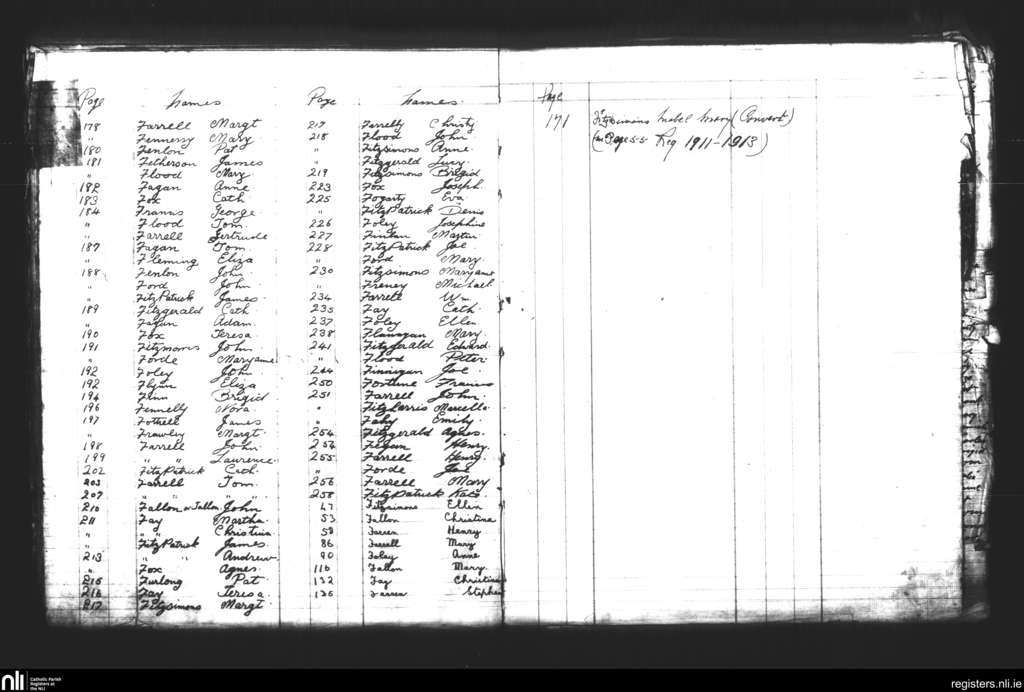 Page Names
178 Farrell Margt
" Fennessy Mary
180 Fenlon Pat
181 Fetherson James
" Flood Mary
182 Fagan Anne
183 Fox Cath
184 Franns George
" Flood Tom
" Farrell Gertrude
187 Fagan Tom
" Fleming Eliza
188 Fenlon John
" Ford John
" FitzPatrick James
189 Fitzgerald Cath
" Fagan Adam
190 Fox Teresa
191 Fitzmorris John
" Forde Maryanne
192 Foley John
192 Flynn Eliza
194 Flinn Brigid
196 Fennelly Nora
197 Fottrell James
" Frawley Margt
198 Farrell John
199 " " Laurence
202 FitzPatrick Cath
203 Farrell Tom
207 " " " "
210 Fallon or Tallon John
211 Fay Martha
" " Christina
" FitzPatrick James
213 " " Andrew
" Fox Agnes
215 Furlong Pat
216 Fay Teresa
217 Fitzsimons Margt
Page Names
217 Farrelly Christy
218 Flood John
" Fitzsimons Anne
" Fitzgerald Lucy
219 Fitzsimons Brigid
223 Fox Joseph
225 Fogarty Eva
" FitzPatrick Denis
226 Foley Josephine
227 Finlan Martin
228 FitzPatrick Joe
" Ford Mary
230 Fitzsimons Maryanne
" Freney Michael
234 Farrell Wm
235 Fay Cath
237 Foley Ellen
238 Flanagan Mary
241 Fitzgerald Edward
" Flood Peter
244 Finnigan Joe
250 Fortune Francis
251 Farrell John
" Fitzharris Marcella
" Fahy Emily
254 Fitzgerald Agnes
254 Fegan Henry
255 Farrell Henry
" Forde
256 Farrell Mary
258 FitzPatrick Kate
47 Fitzsimons Ellen
53 Fallon Christina
58 Farren Henry
86 Farrell Mary
90 Foley Anne
110 Fallon Mary
132 Fay Christina
136 Farren Stephen
Page
171 Fitzsimons Mabel Mary (Convert)
(see Page 55 Reg 1911-1913)
nli Catholic Parish Registers at the NLI
registers.nli.ie